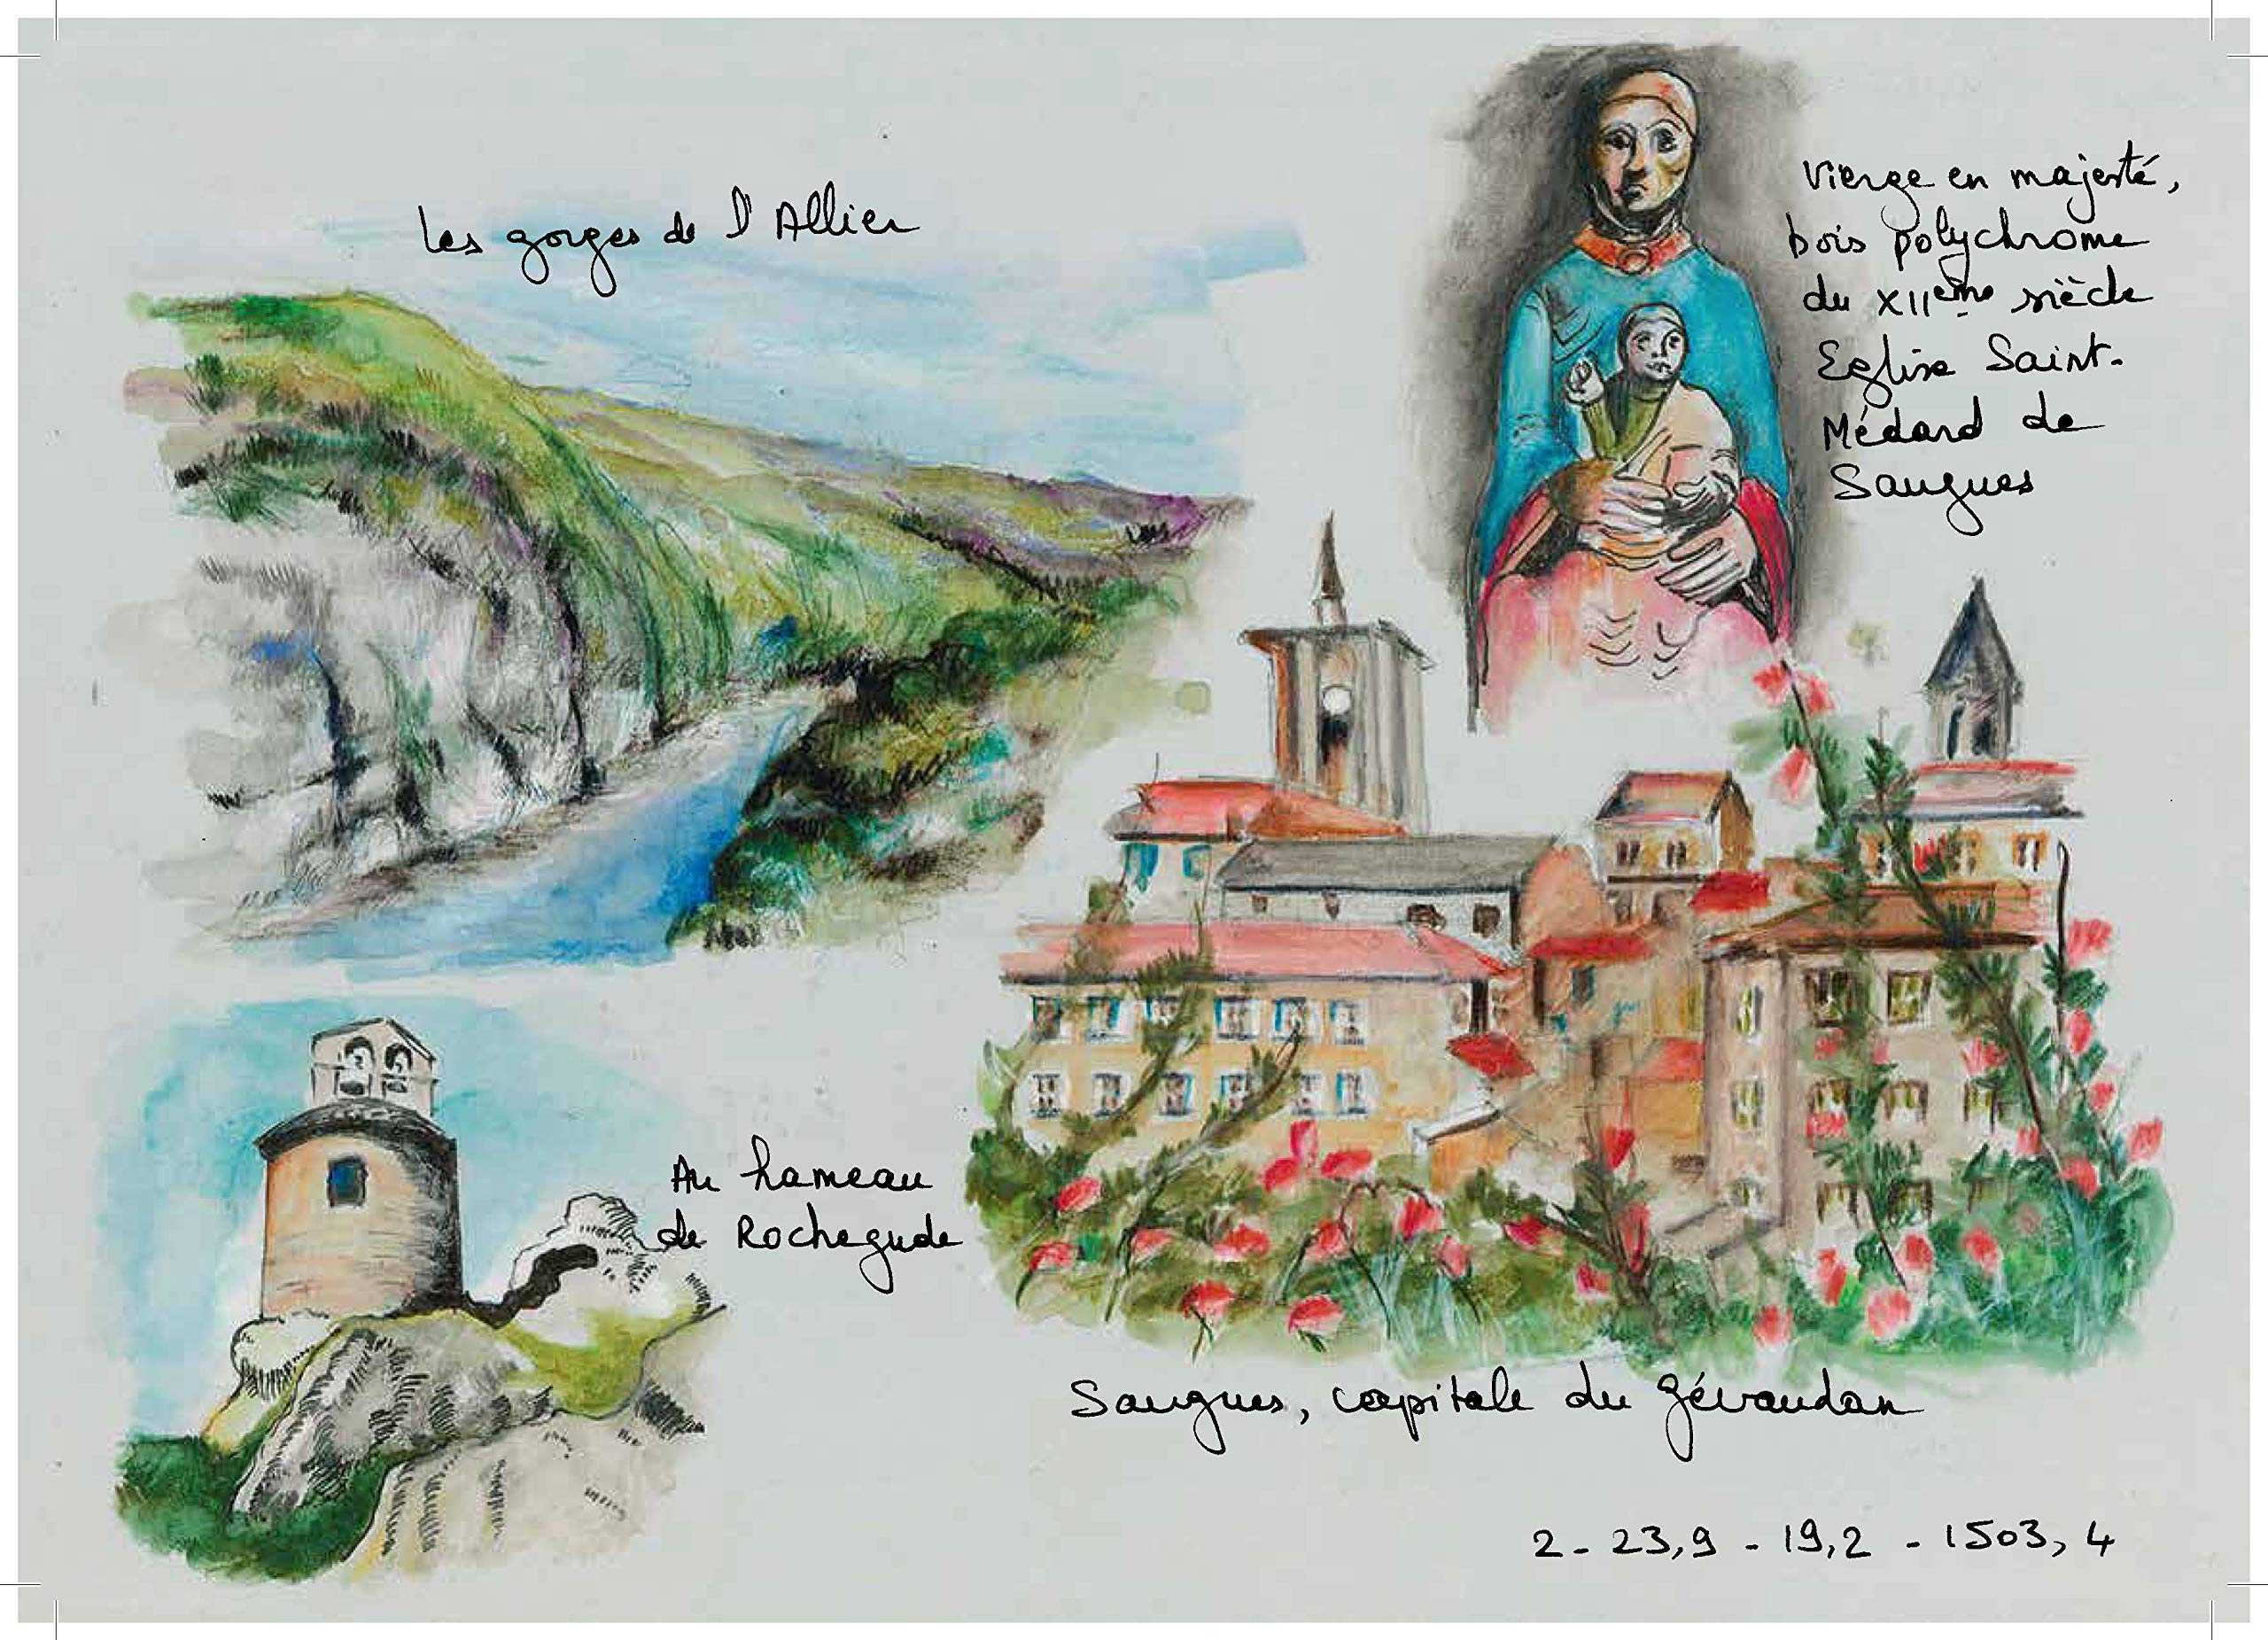 Les gorges de l'Allier
Vierge en majesté,
bois polychrome
du XIIème siècle
Eglise Saint-
Médard de
Saugues
Au hameau
de Rochegude
Saugues, capitale du Gévaudan
2 - 23,9 - 19,2 - 1503,4